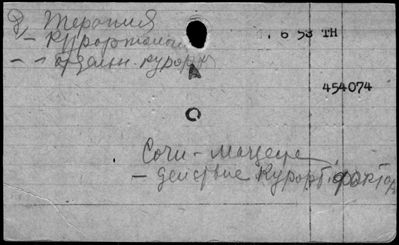 Терапия
– Курортология
– " – отдельн. курорты
1. 6 53 ТН
454074
Сочи – Мацеста,
– действие курорт. фактор